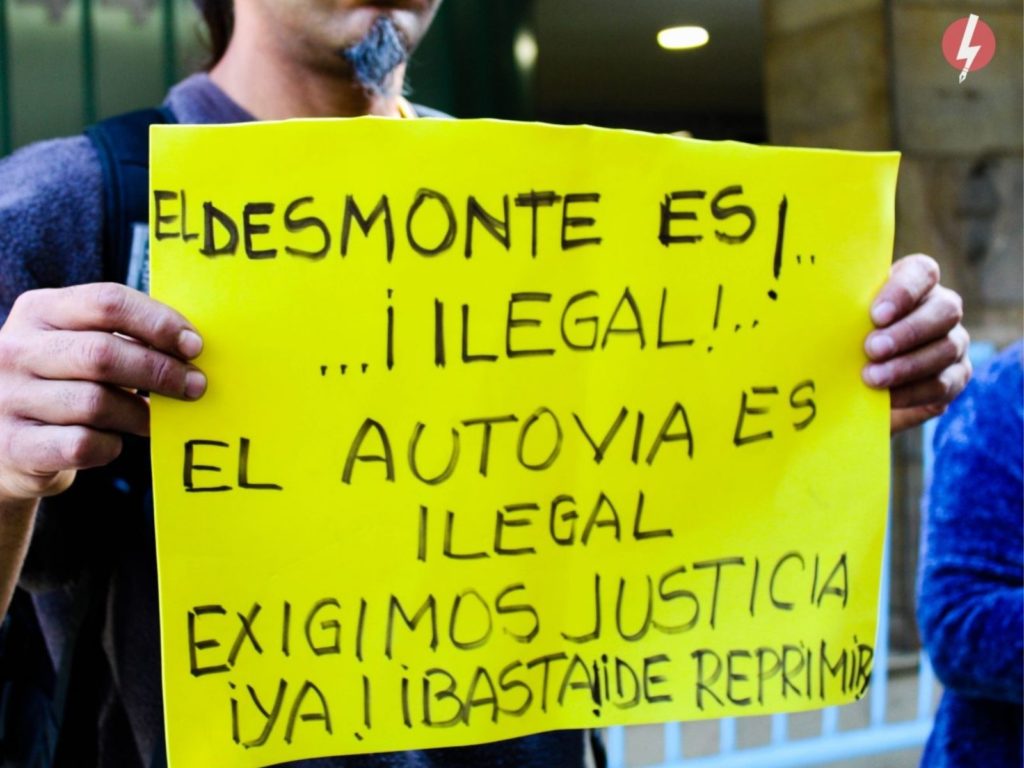 EL DESMONTE ES !..
...¡ ILEGAL!..
EL AUTOVIA ES
ILEGAL
EXIGIMOS JUSTICIA
¡YA! ¡BASTA! DE REPRIMIR